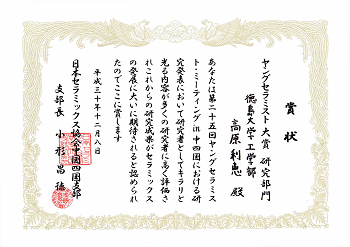 賞状
ヤングセラミスト大賞 研究部門
徳島大学工学部
高原利恵 殿
あなたは第二十五回ヤングセラミス
ト・ミーティングin中四国における研
究発表において研究者としてキラリと
光る内容が多くの研究者に高く評価さ
れこれからの研究成果がセラミックス
の発展に大いに期待されると認められ
たのでここに賞します
平成三十年十二月八日
日本セラミックス協会中国四国支部
支部長 小形昌徳